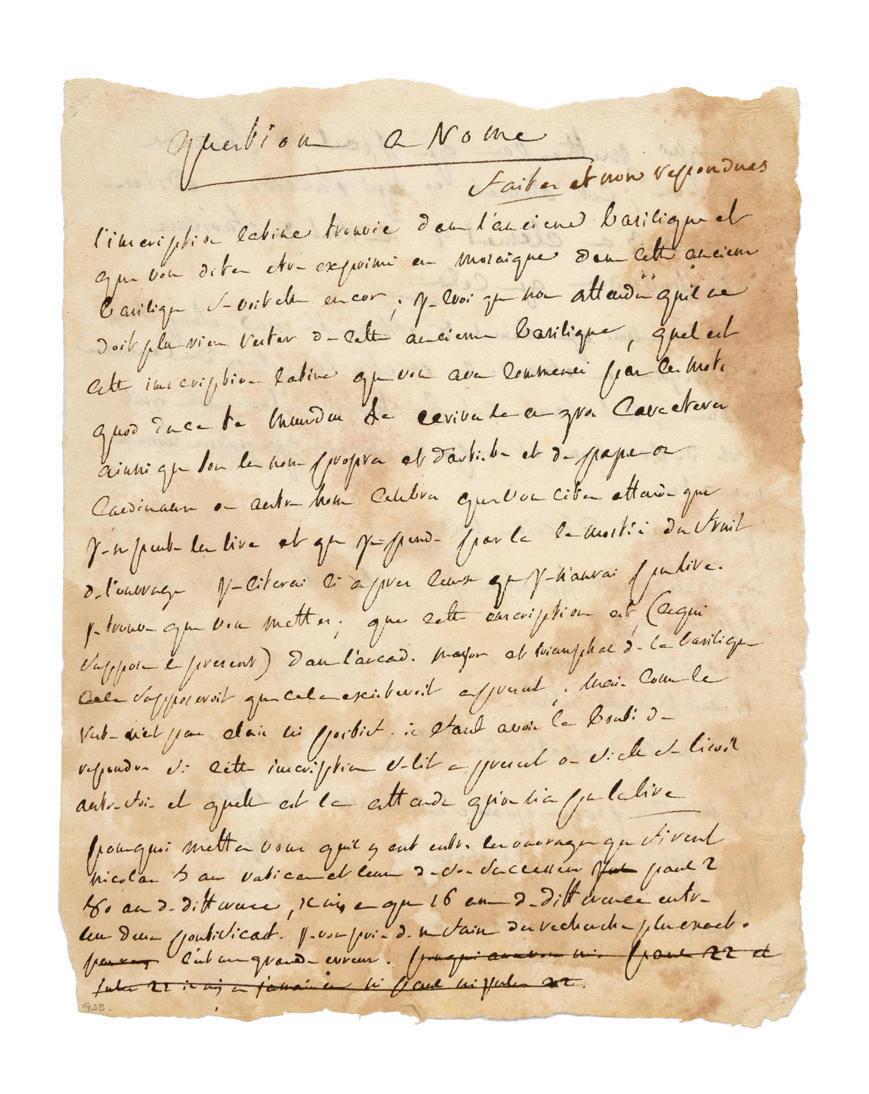 question a Rome
faites et non repondues
l'inscription latine trouvée dans l'ancienne basilique et
que vous dites etre exprimé en mosaique dans cette ancienne
basilique se voit elle encor, je crois que non attendu qu'il ne
doit plus rien rester de cette ancienne basilique, quel est
cette inscription latine que vous avez commencé par les mots
quod duce te mundus la ecrire en gros caracteres
ainsi que tous les noms propres et d'artistes et de papes ou
cardinaux ou autres noms celebres que vous cites attendu que
je ne peut les lire et que je perds par la la moitié du fruit
de l'ouvrage je citerai ci apres ceux que je n'aurai pu lire.
je trouve que vous mettes, que cette inscription est (ce qui
suppose le present) dans l'arcade majeur et triumphal de la basilique
cela supposeroit que cela existeroit a present, mais comme le
n'est pas clair ni positif. il faut avoir la bonté de
repondre si cette inscription se lit a present ou si elle se lisoit
autrefois et quelle est la attendu qu'on n'a pu la lire
pourquoi mettes vous qu'il y eut entre les ouvrages que firent
nicolas 5 au vatican et ceux de son successeur paul 2
80 ans de difference, il n'y a que 16 ans de difference entre
les deux pontificat. je vous prie d'en faire des recherches plus exactes.
c'est une grande erreur. paul 22 et
jules 22 il n'y a jamais eu ni paul ni jules 22.
GDB